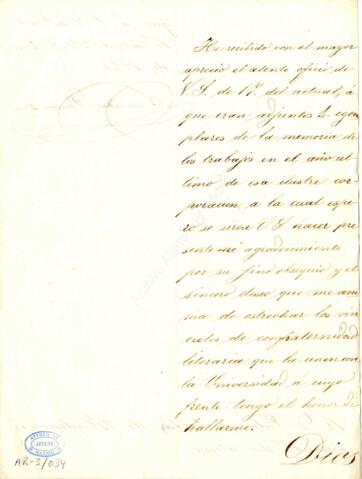 He recibido con el mayor
aprecio el atento oficio de
V. S. de 17 del actual, á
que eran adjuntos 4 egem
plares de la memoria de
los trabajos en el año úl
timo de esa ilustre cor
poracion, a la cual espe
ro se sirva V. S. hacer pre
sente mi agradecimiento
por su fino obsequio y el
sincero deseo que me ani
ma de estrechar los vin
culos de confraternidad
literaria que la unen con
la Universidad a cuyo
frente tengo el honor de
hallarme.
Dios
AR-3/034